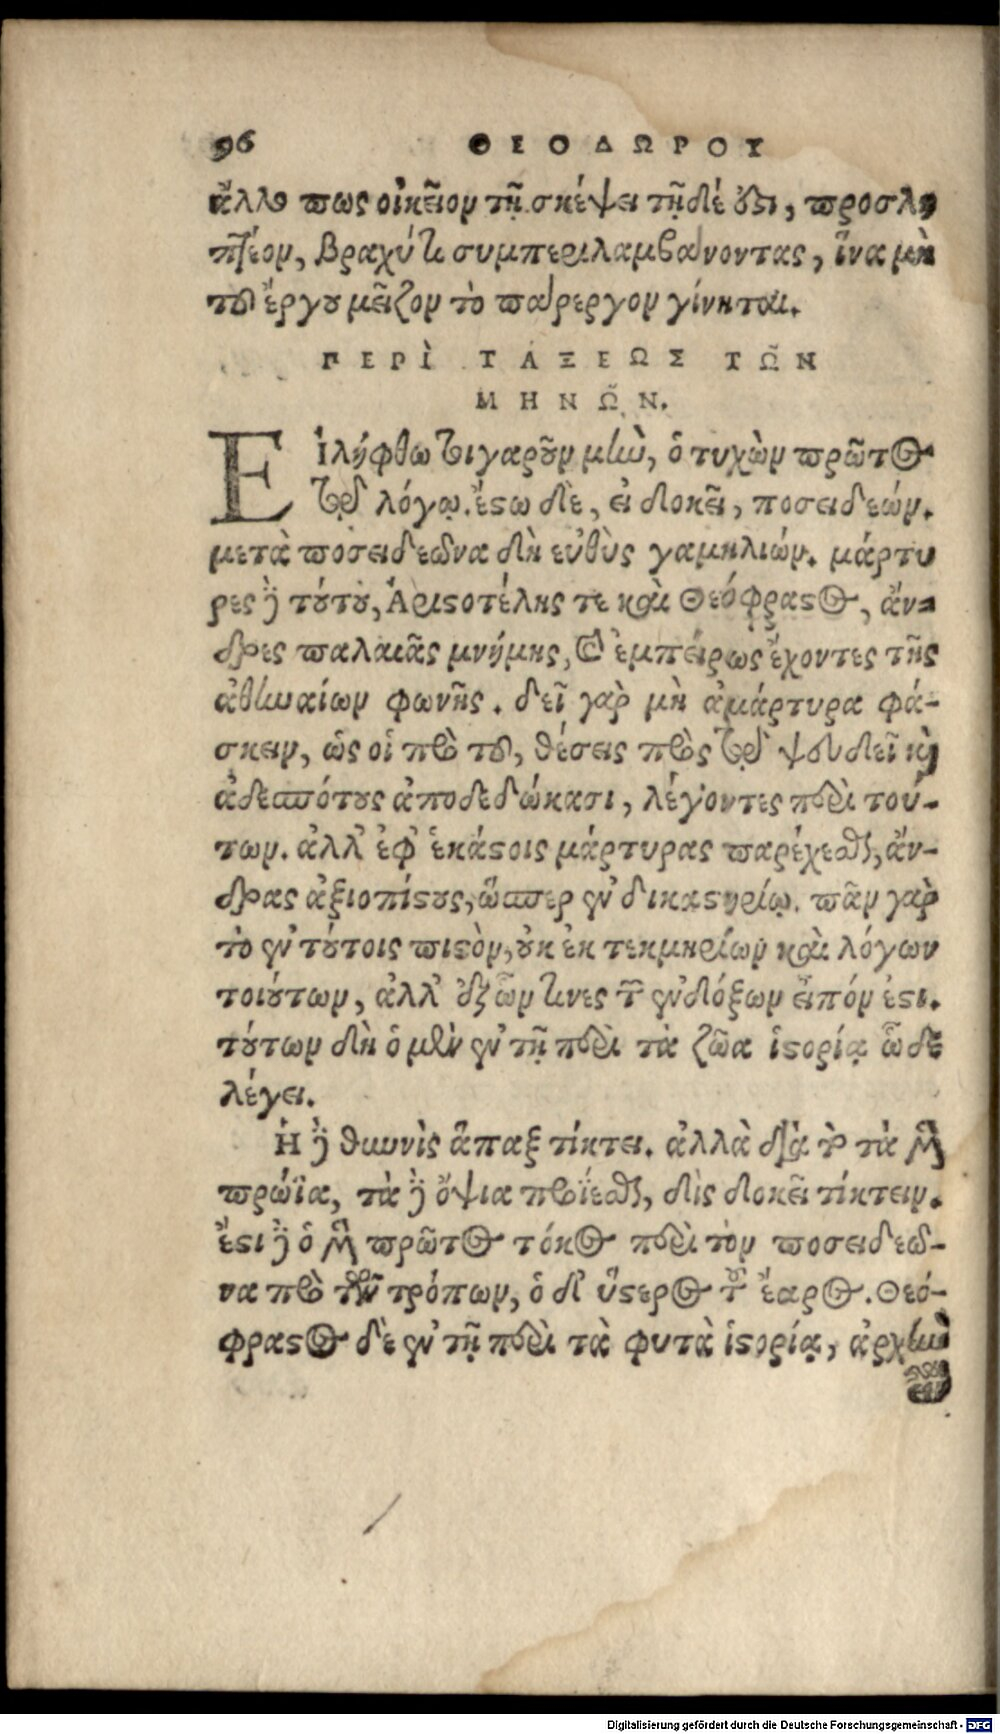 96 ΘΕΟΔΩΡΟΥ
ἄλλο πως οἰκεῖον τῇ σκέψει τῇδέ ὅτι, προσλη
πτέον, βραχύ τι συμπεριλαμβάνοντας, ἵνα μὴ
τοῦ ἔργου μεῖζον τὸ πάρεργον γίνηται.
ΠΕΡὶ ΤΆΞΕΩΣ ΤΩ͂Ν
ΜΗΝΩ͂Ν.
Εἰλήφθω τοιγαροῦν μὴν, ὁ τυχὼν πρῶτος
τῷ λόγῳ. ἔστω δὲ, εἰ δοκεῖ, ποσειδεών.
μετὰ ποσειδεῶνα δὴ εὐθὺς γαμηλιών. μάρτυ
ρες δὲ τούτου, Ἀριστοτέλης τε καὶ Θεόφραστος, ἄν-
δρες παλαιᾶς μνήμης, καὶ ἐμπείρως ἔχοντες τῆς
ἀθηναίων φωνῆς. δεῖ γὰρ μὴ ἀμάρτυρα φά-
σκειν, ὡς οἱ πρὸ τοῦ, θέσεις πρὸς τῷ ψευδεῖ καὶ
ἀδεσπότους ἀποδεδώκασι, λέγοντες περὶ τού-
των. ἀλλ' ἐφ' ἑκάστοις μάρτυρας παρέχεσθαι, ἄν-
δρας ἀξιοπίστους, ὥσπερ ἐν δικαστηρίῳ. πᾶν γὰρ
τὸ ἐν τούτοις πιστὸν, οὐκ ἐκ τεκμηρίων καὶ λόγων
τοιούτων, ἀλλ' ἐξ ὧν τινες τῶν ἐνδόξων εἶπόν ἐστι.
τούτων δὴ ὁ μὲν ἐν τῇ περὶ τὰ ζῶα ἱστορίᾳ ὧδε
λέγει.
Ἡ δὲ θυννὶς ἅπαξ τίκτει. ἀλλὰ διὰ τὸ τὰ μὲν
πρώϊα, τὰ δὲ ὄψια προΐεσθαι, δὶς δοκεῖ τίκτειν.
ἔστι δὲ ὁ μὲν πρῶτος τόκος περὶ τὸν ποσειδεῶ-
να πρὸ τῶν τρόπων, ὁ δ' ὕστερος τοῦ ἔαρος. Θεό-
φραστος δὲ ἐν τῇ περὶ τὰ φυτὰ ἱστορίᾳ, ἀρχὴν
Digitalisierung gefördert durch die Deutsche Forschungsgemeinschaft - DFG